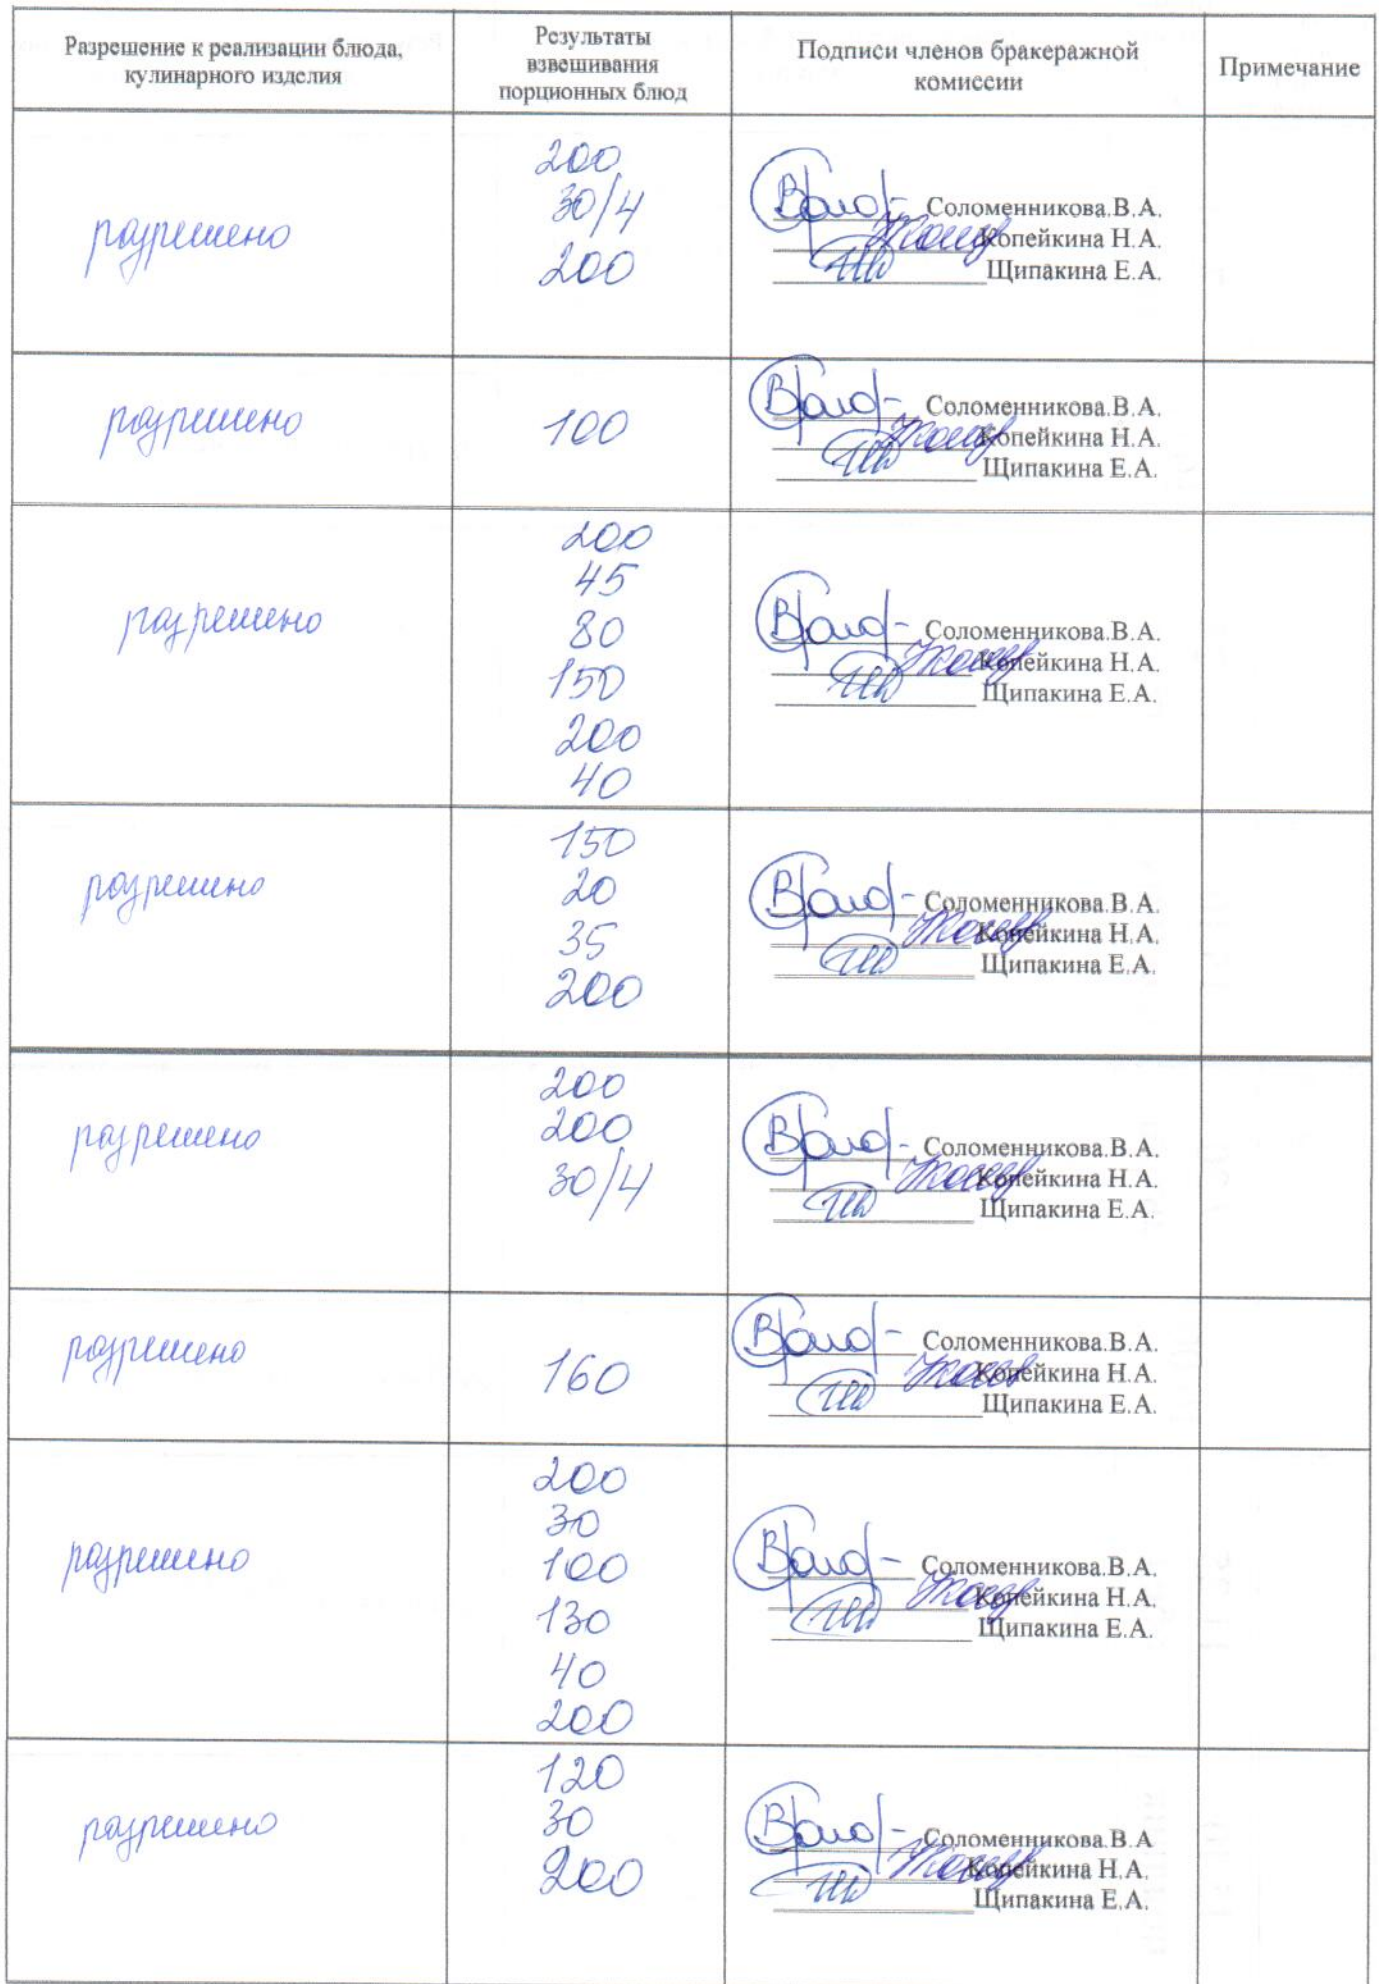 Разрешение к реализации блюда,
кулинарного изделия
Результаты
взвешивания
порционных блюд
Подписи членов бракеражной
комиссии
Примечание
разрешено
200
30/4
200
Соломенникова.В.А.
Копейкина Н.А.
Щипакина Е.А.
разрешено
100
Соломенникова.В.А.
Копейкина Н.А.
Щипакина Е.А.
разрешено
200
45
80
150
200
40
Соломенникова.В.А.
Копейкина Н.А.
Щипакина Е.А.
разрешено
150
20
35
200
Соломенникова.В.А.
Копейкина Н.А.
Щипакина Е.А.
разрешено
200
200
30/4
Соломенникова.В.А.
Копейкина Н.А.
Щипакина Е.А.
разрешено
160
Соломенникова.В.А.
Копейкина Н.А.
Щипакина Е.А.
разрешено
200
30
100
130
40
200
Соломенникова.В.А.
Копейкина Н.А.
Щипакина Е.А.
разрешено
120
30
200
Соломенникова.В.А
Копейкина Н.А.
Щипакина Е.А.